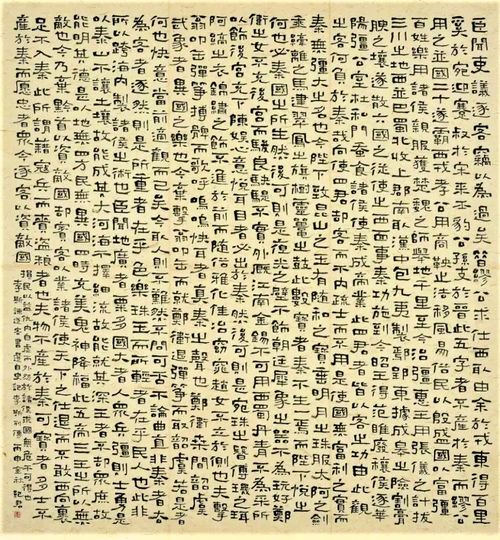 臣聞吏議逐客竊以為過矣昔繆公求仕西取由余於戎東得百里
奚於宛迎蹇叔於宋來丕豹公孫支於晉此五子者不產於秦而繆公
用之並國二十遂霸西戎孝公用商鞅之法移風易俗民以殷盛國以富彊
百姓樂用諸侯親服獲楚魏之師舉地千里至今治彊惠王用張儀之計拔
三川之地西並巴蜀北收上郡南取漢中包九夷製鄢郢東據成皋之險割膏
腴之壤遂散六國之從使之西面事秦功施到今昭王得范雎廢穰侯逐華
陽彊公室杜私門蠶食諸侯使秦成帝業此四君者皆以客之功由此觀
之客何負於秦哉向使四君却客而不内疏士而不用是使國無富利之實而
秦無彊大之名也今陛下致昆山之玉有隨和之寶垂明月之珠服太阿之劍
乘纖離之馬建翠鳳之旗樹靈鼉之鼓此數寶者秦不生一焉而陛下悦之
何也必秦國之所生然後可則是夜光之璧不飾朝廷犀象之器不為玩好鄭
衛之女不充後宮而駿良駃騠不實外厩江南金錫不可用西蜀丹青不為采所
以飾後宮充下陳娛心意悦耳目者必出於秦然後可則是宛珠之簪傅璣之珥
阿縞之衣錦繡之飾不進於前而隨俗雅化佳冶窈窕趙女不立於側也夫擊
甕叩缶彈箏搏髀而歌呼嗚嗚快耳者真秦之聲也鄭衛桑間韶虞
武象者異國之樂也今棄擊甕叩缶而就鄭衛退彈箏而取韶虞若是者
何也快意當前適觀而已矣今取人則不然不問可否不論曲直非秦者去
為客者逐然則是所重者在乎色樂珠玉而所輕者在乎民人也此非
所以跨海内製諸侯之術也臣聞地廣者粟多國大者人眾兵彊則士勇是
以泰山不讓土壤故能成其大河海不擇細流故能就其深王者不却眾庶故
能明其德是以地無四方民無異國四時充美鬼神降福此五帝三王之所以無
敵也今乃棄黔首以資敵國却賓客以業諸侯使天下之士退而不敢西向裹
足不入秦此所謂籍寇兵而賫盜粮者也夫物不產於秦可寶者多士不
產於秦而愿忠者眾今逐客以資敵國
損民以益仇内自虛而外樹怨於諸侯求國無危不可得也
李斯諫逐客書選自史記李斯列傳